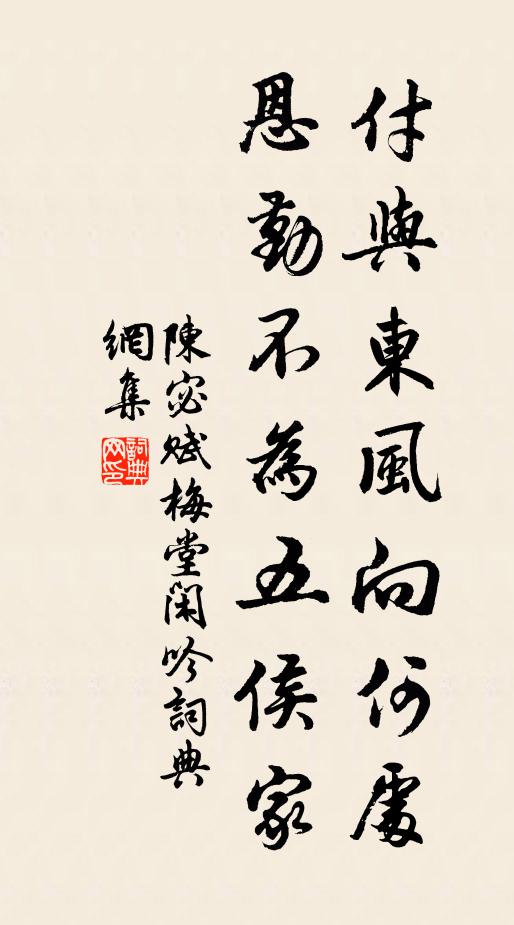 付與東風向何處
恩勤不為五侯家
陳宓賦梅堂閑吟詞典
網集
詞典
网印